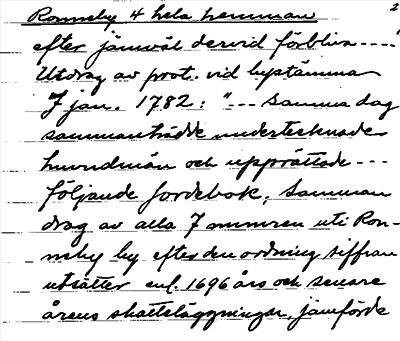 Ronneby 4 hela hemman 2
efter jämväl dervid förbliva ----"
Utdrag av prot. vid bystämma
7 jan. 1782: "--- Samma dag
sammanträdde undertecknade
huvudmän och upprättade ---
följande jordebok. Samman
drag av alla 7 numren uti Ron-
neby by efter den ordning siffran
utsätter enl. 1696 års och senare
årens skatteläggningar, jämförde